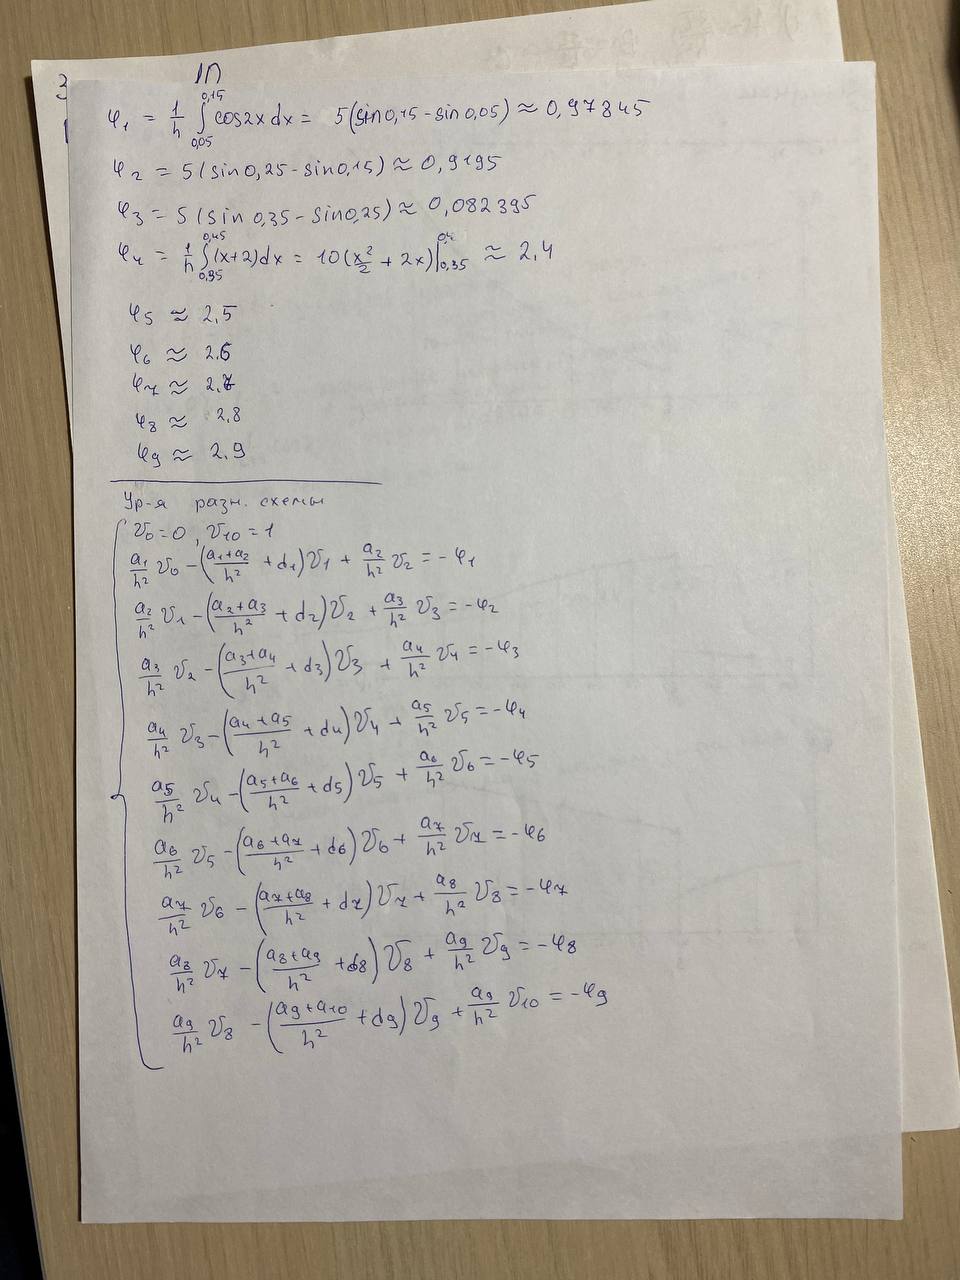 φ₁ = 1/h ∫_{0,05}^{0,15} cos2x dx = 5(sin0,15 - sin0,05) ≈ 0,97845
φ₂ = 5(sin0,25 - sin0,15) ≈ 0,9195
φ₃ = 5(sin0,35 - sin0,25) ≈ 0,082395
φ₄ = 1/h ∫_{0,35}^{0,45} (x+2)dx = 10(x²/2 + 2x)|_{0,35}^{0,4} ≈ 2,4
φ₅ ≈ 2,5
φ₆ ≈ 2,6
φ₇ ≈ 2,7
φ₈ ≈ 2,8
φ₉ ≈ 2,9
Ур-я разн. схемы
v₀ = 0, v₁₀ = 1
a₁/h² v₀ - (a₁+a₂/h² + d₁)v₁ + a₂/h² v₂ = -φ₁
a₂/h² v₁ - (a₂+a₃/h² + d₂)v₂ + a₃/h² v₃ = -φ₂
a₃/h² v₂ - (a₃+a₄/h² + d₃)v₃ + a₄/h² v₄ = -φ₃
a₄/h² v₃ - (a₄+a₅/h² + d₄)v₄ + a₅/h² v₅ = -φ₄
a₅/h² v₄ - (a₅+a₆/h² + d₅)v₅ + a₆/h² v₆ = -φ₅
a₆/h² v₅ - (a₆+a₇/h² + d₆)v₆ + a₇/h² v₇ = -φ₆
a₇/h² v₆ - (a₇+a₈/h² + d₇)v₇ + a₈/h² v₈ = -φ₇
a₈/h² v₇ - (a₈+a₉/h² + d₈)v₈ + a₉/h² v₉ = -φ₈
a₉/h² v₈ - (a₉+a₁₀/h² + d₉)v₉ + a₉/h² v₁₀ = -φ₉